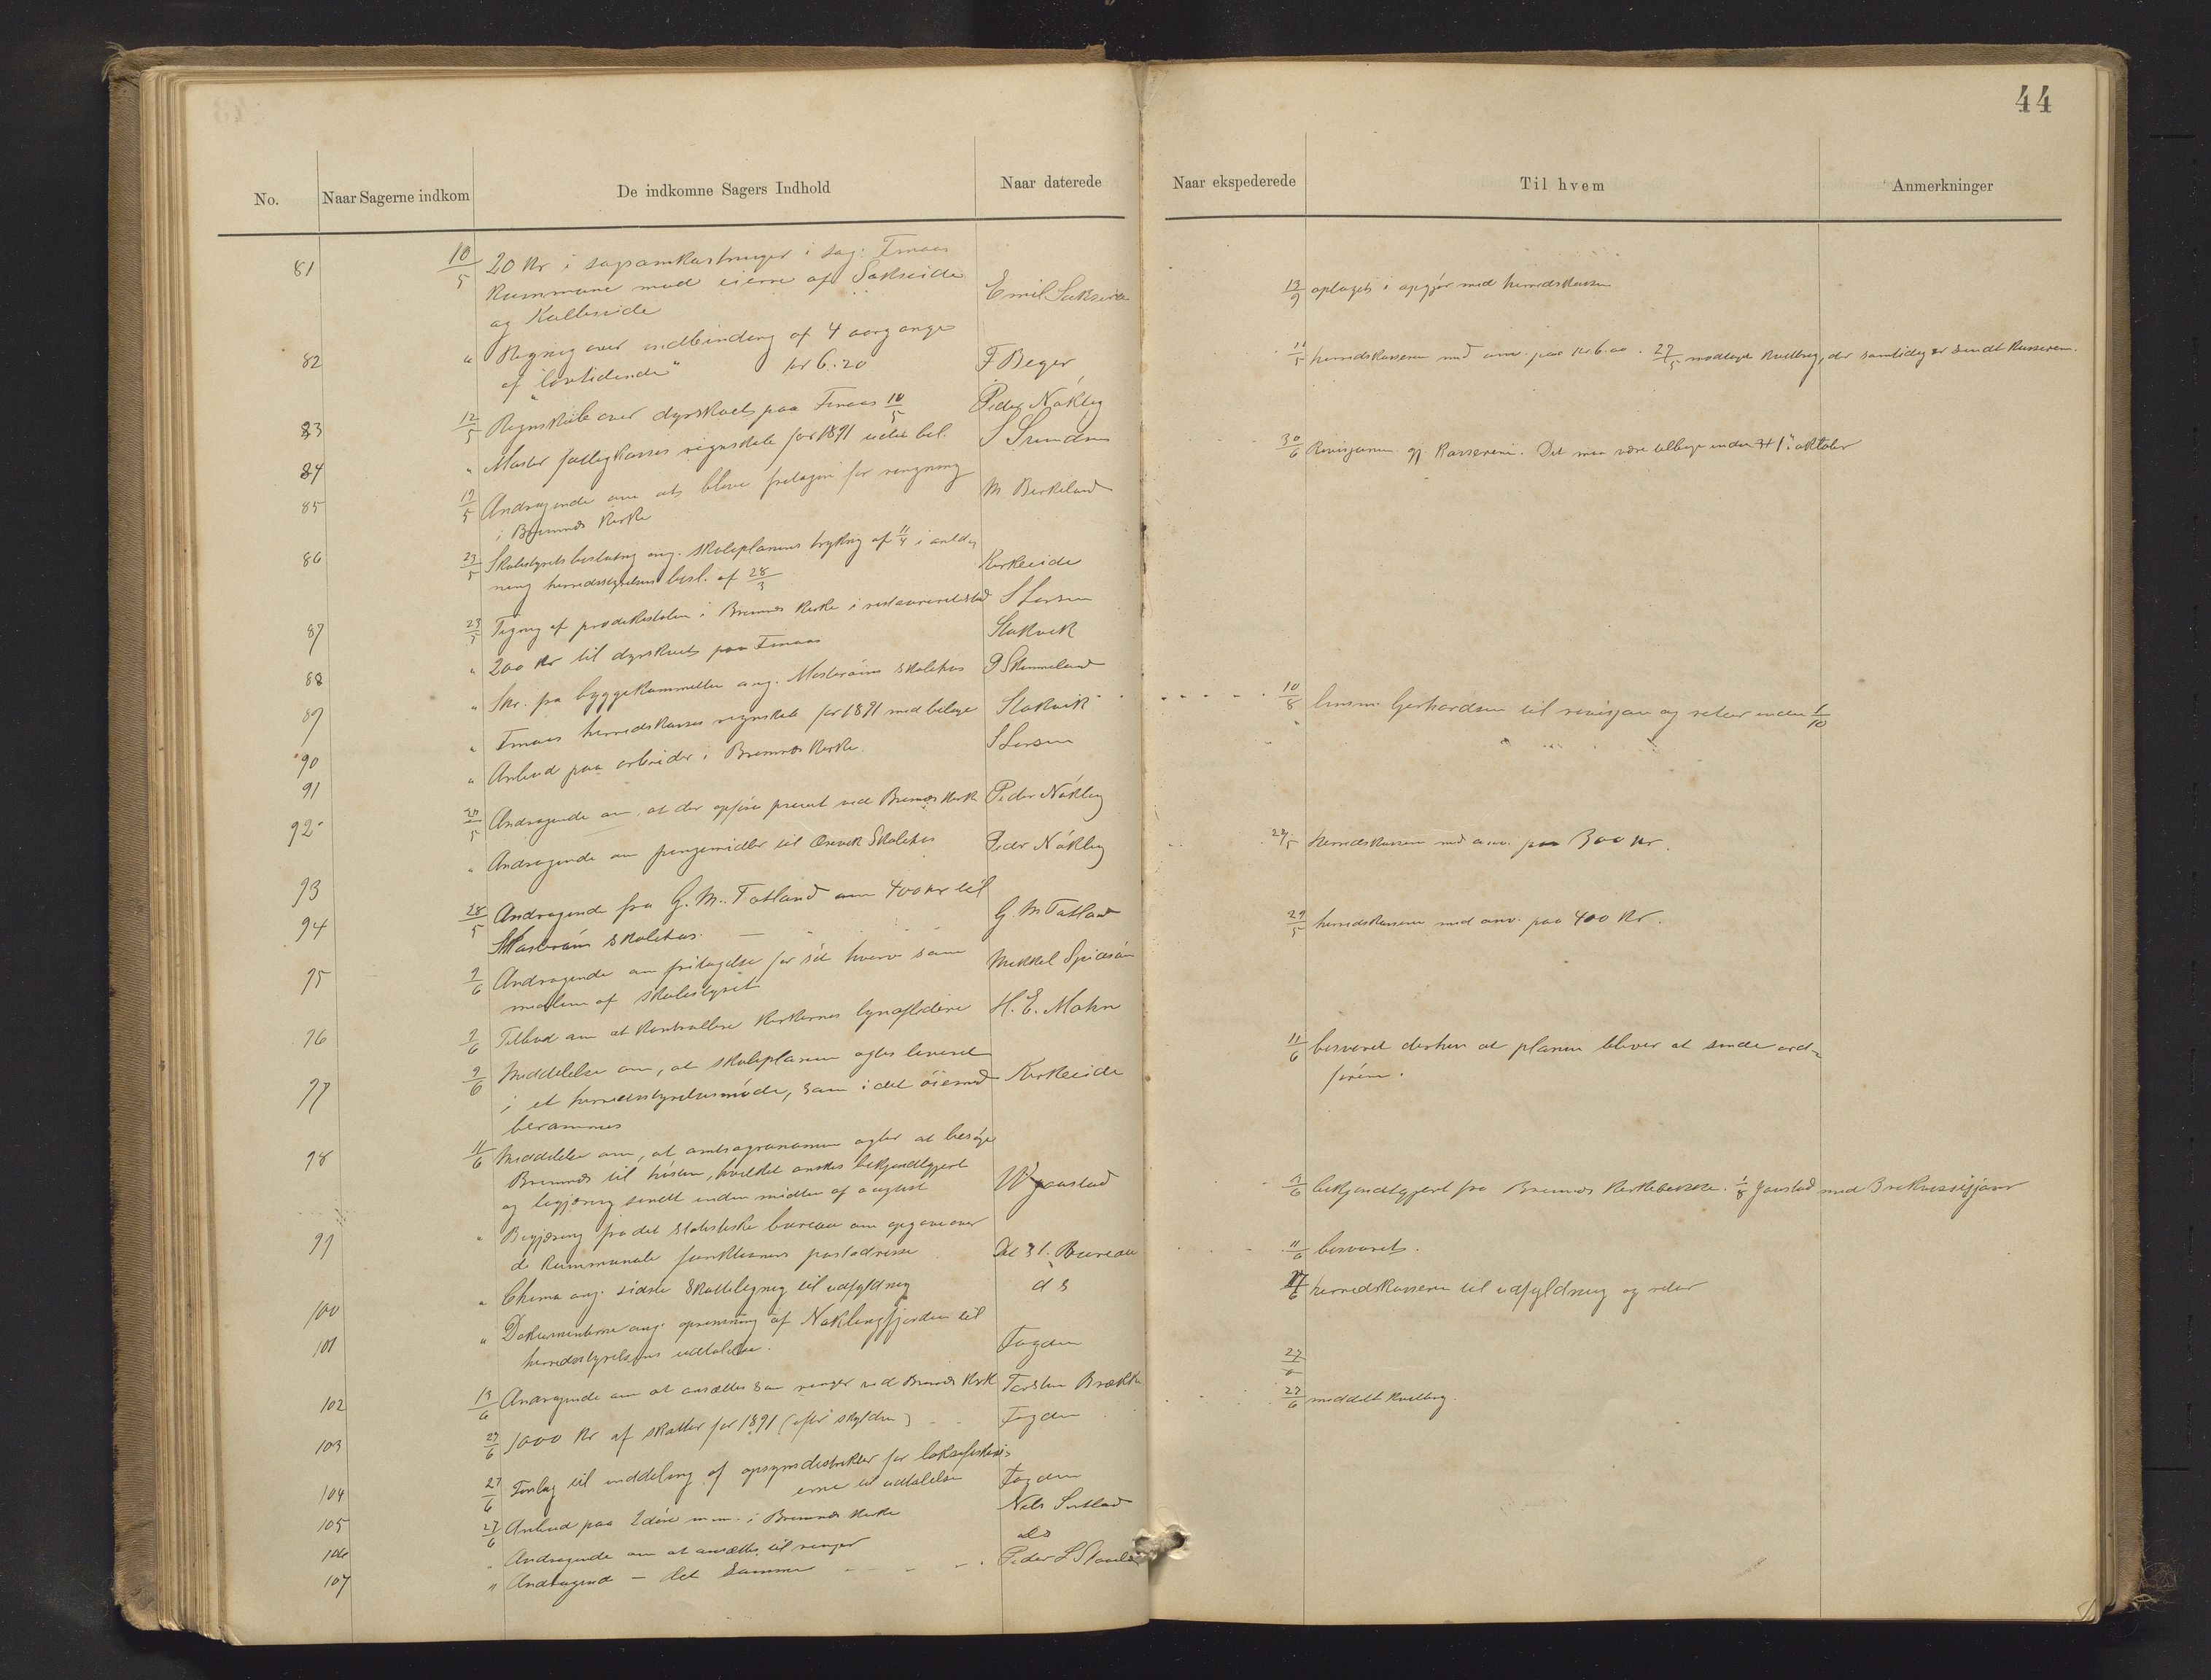 44
No.
Naar Sagerne indkom
De indkomne Sagers Indhold
Naar daterede
Naar ekspederede
Til hvem
Anmerkninger
81 10/5 20 Kr i sagsomkostninger i sag: Finaas
Kommune mod eierne af Sakseide
og Kulleseide Emil Sakseide 13/9 optaget i opgjør med herredskassen
82 " Regning over indbinding af 4 aargange
af "Lovtidende" kr 6.20 F Beyer 11/5 herredskasseren med anv. paa kr 6.20. 27/5 modtaget kvittering, der samtidig er sendt kasseren.
83 12/5 Regnskab over dyrskuet paa Finaas 10/5 Peder Nökling
84 " Moster fattigkasses regnskab for 1891 uden bil. S 30/6 Revisjonen gj. Kasseren. Det maa være tilbage inden 1ste oktober
85 19/5 Andragende om at blive fritagen for ringning
i Bremnes Kirke M Birkeland
86 23/5 Skolestyrets beslutning ang. skoleplanens trykning af 11/4 i anled-
ning herredsstyrelsens besl. af 28/3 Kirkeeide
87 23/5 Tegning af prædikestolen i Bremnes kirke i restaureret stad S Larsen
88 " 200 kr til dyrskuet paa Finaas Stokvik
89 " Skr. fra byggekommitteen ang. Mosterøens skolehus P Skimmeland
90 " Finaas herredskasses regnskab for 1891 med bilage Stokvik 10/8 lensm. Gerhardsen til revisjon og retur inden 1/10
91 " Anbud paa arbeider i Bremnes kirke. S Larsen
92 27/5 Andragende om, at der opføres privet ved Bremnes kirke Peder Nökling
93 " Andragende om pengemidler til Ørevik Skolehus Peder Nökling 29/5 herredskasseren med anv. paa 300 kr.
94 28/5 Andragende fra G. M. Totland om 400 kr til
Mosterøens skolehus. G. M Totland 29/5 herredskasseren med anv. paa 400 kr.
95 9/6 Andragende om fritagelse for sit hverv som
medlem af skolestyret Mikkel Spidsöen
96 9/6 Tilbud om at kontrollere kirkernes lynafledere H. E. Mohn
97 9/6 Meddelelse om, at skoleplanen agtes leveret
i et herredsstyrelsesmöde, som i det öiemed
berammes Kirkeeide 11/6 besvaret derhen at planen bliver at sende ord-
føreren.
98 11/6 Meddelelse om, at amtsagronomen agter at besöge
Bremnes til hösten, hvilket ønskes bekjendtgjort
og begjæring sendt inden midten af august W Jaastad bekjendtgjort fra Bremnes Kirkebakke. 1/8 Jaastad med 3 rekvisisjoner
99 " Begjæring fra det statistiske bureau om opgave over
de kommunale funktionærers postadresse Det St. Bureau 11/6 besvaret.
100 " Chema ang. sidste skatteligning til udfyldning d s herredskasseren til udfyldning og retur
101 " Dokumenterne ang. oprensning af Nøklingfjorden til
herredsstyrelsens udtalelse. Fogden
102 13/6 Andragende om at ansættes som ringer ved Bremnes Kirk Torsten Brække
103 27/6 1000 Kr af skatter for 1891 (efter skylden) Fogden 27/6 meddelt kvittering.
104 27/6 Forslag til inddeling af opsynsdistrikter for laksefiskeri-
erne til udtalelse Fogden
105 27/6 Anbud paa 2 döre m.m. i Bremnes kirke Nels Sortland
106 " Andragende om at ansættes til ringer do
107 " Andragende – det samme Peder L